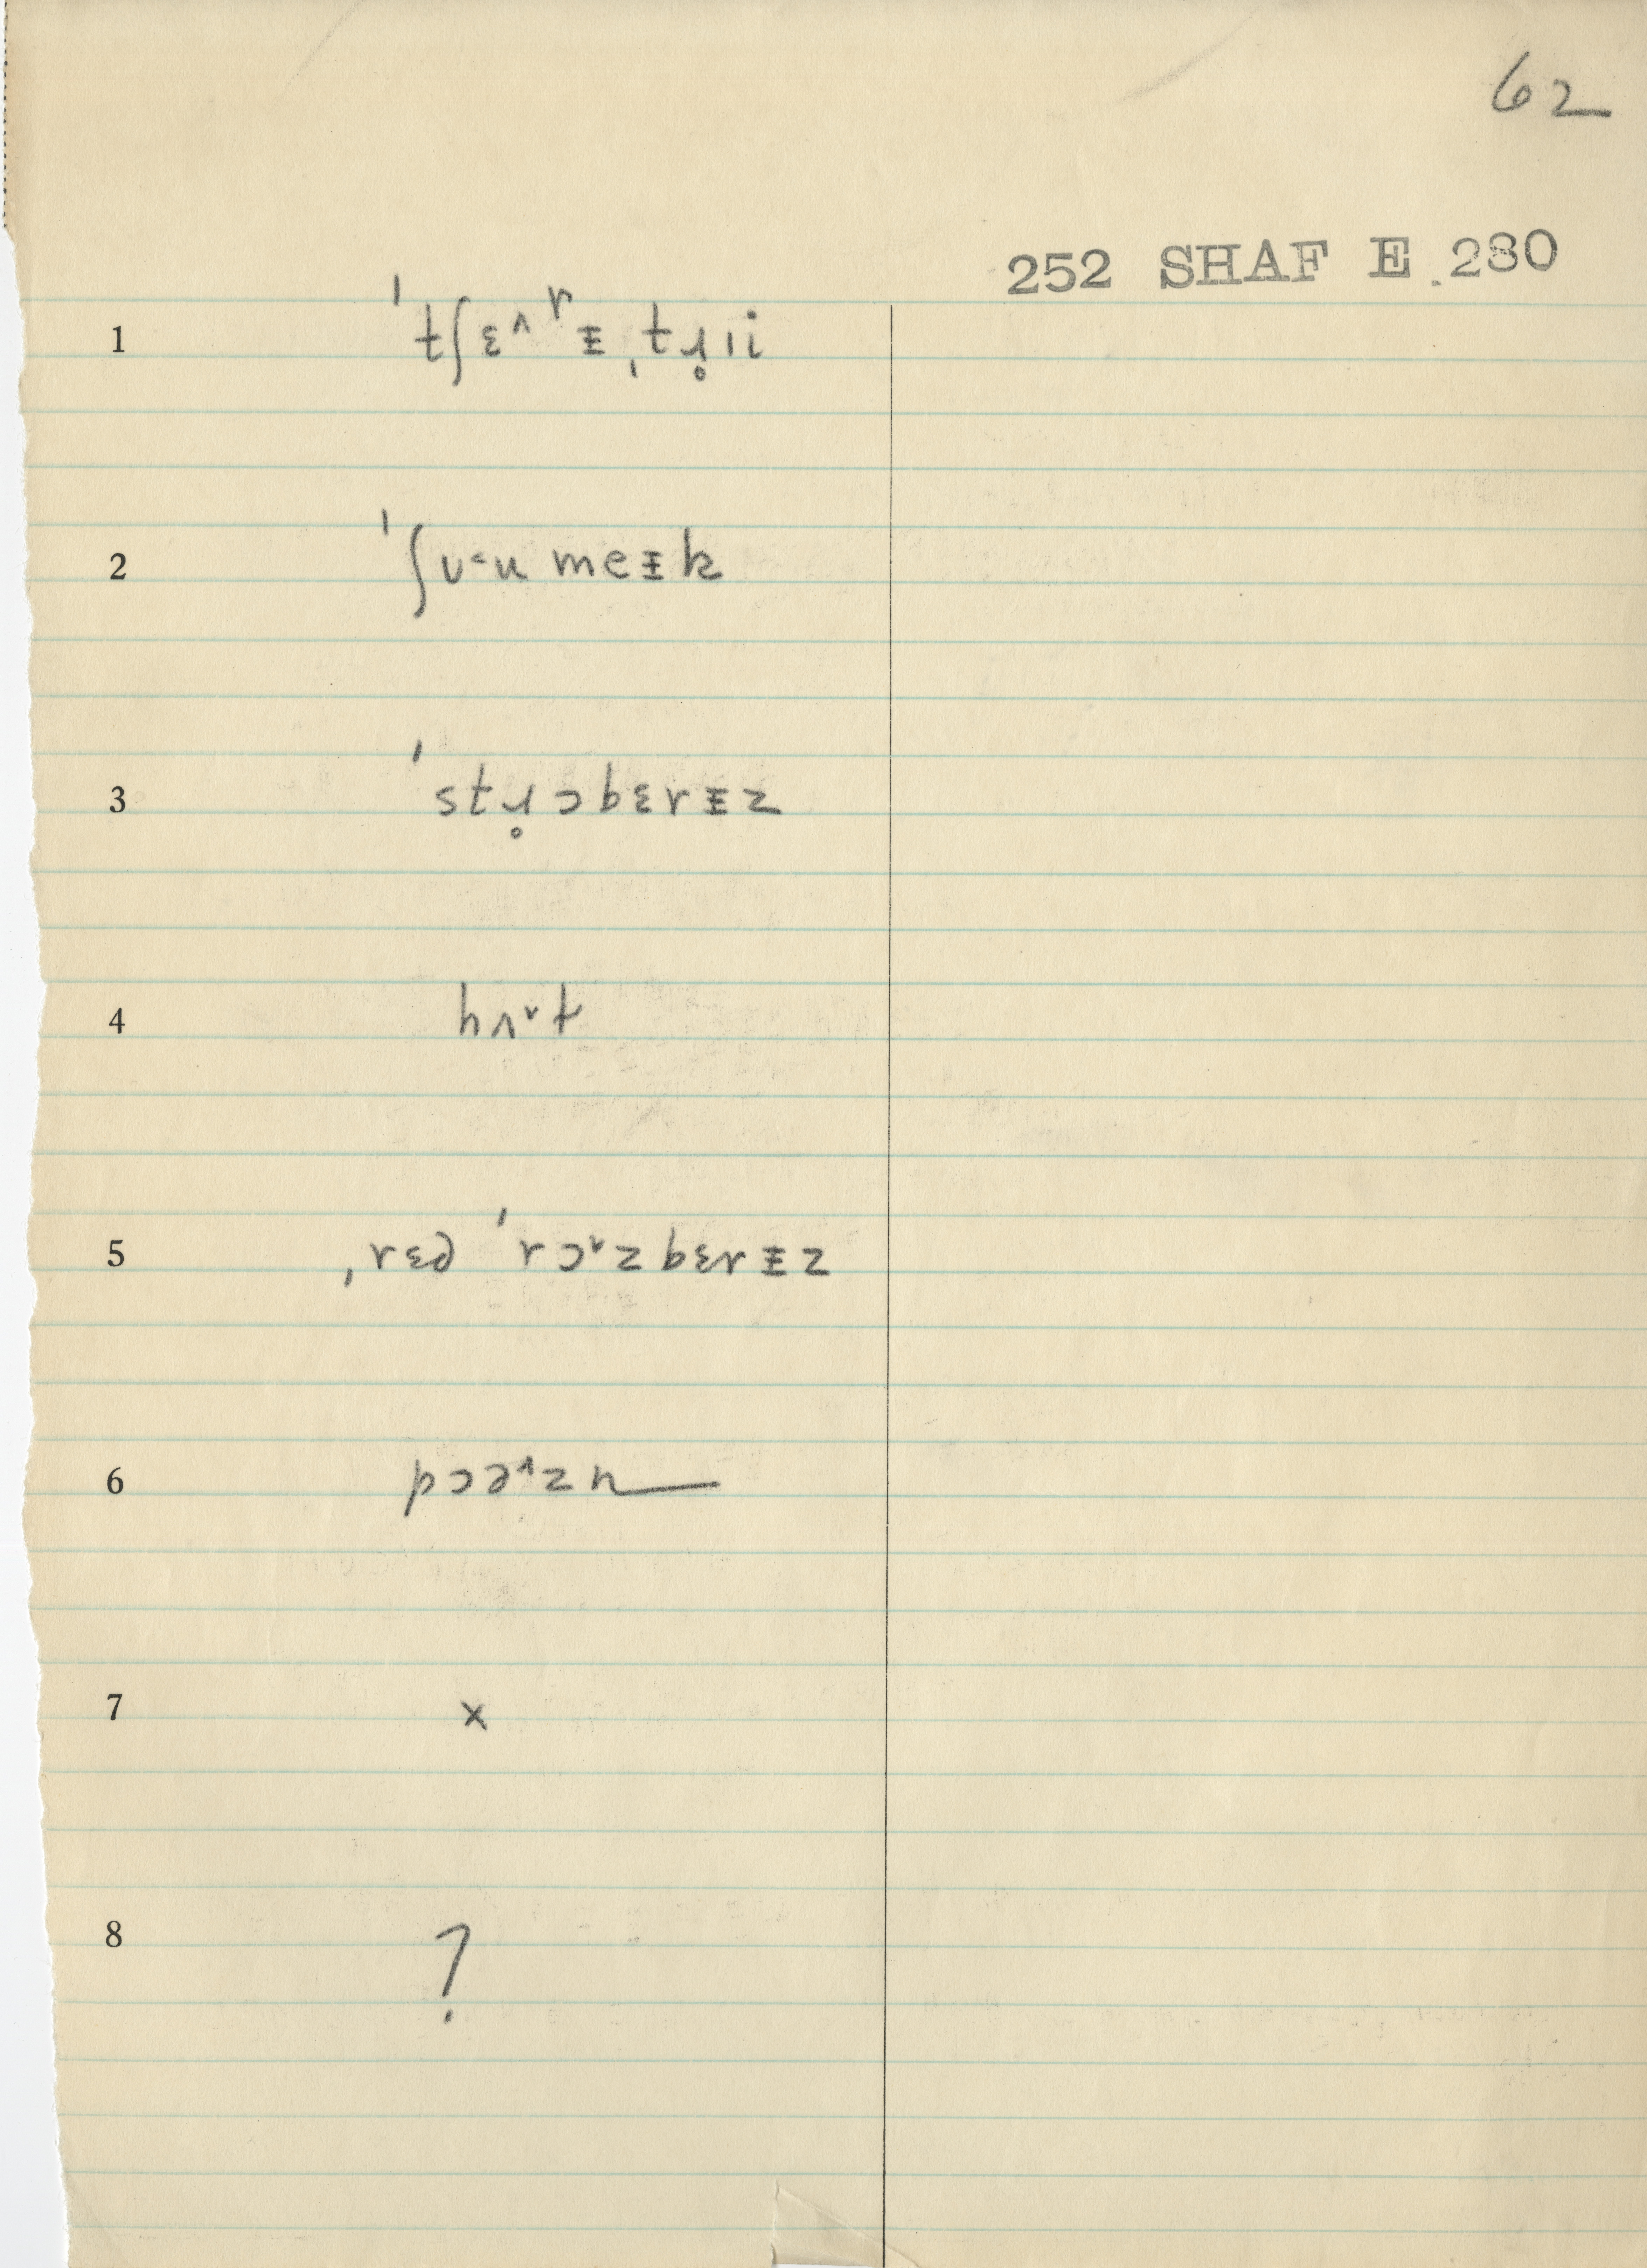 62
252 SHAF E 280
1 ˈtʃɛ˄ɹɨ ˌtɹ̥ɪi
2 ˈʃʊ˂u meɨk
3 ˈstɹ̥ɔbɛrɨz
4 hʌ˅t
5 ˈrɔ˅zbɛrɨz
6 pɔə˄zn
7 x
8 ?